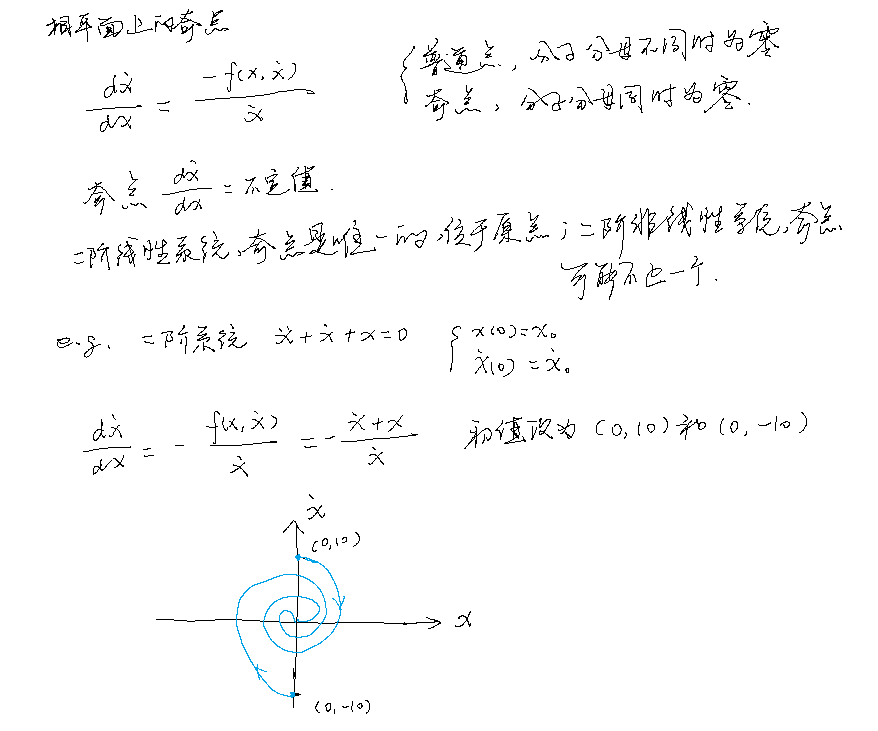 相平面上的奇点
dẋ/dx = -f(x, ẋ)/ẋ { 普通点，分子分母不同时为零
奇点，分子分母同时为零.
奇点 dẋ/dx = 不定值.
二阶线性系统，奇点是唯一的，位于原点；二阶非线性系统，奇点
可能不止一个.
e.g. 二阶系统 ẍ+ẋ+x=0 { x(0)=x₀
ẋ(0)=ẋ₀
dẋ/dx = - f(x, ẋ)/ẋ = - ẋ+x/ẋ 初值设为 (0,10) 和 (0,-10)
ẋ
(0,10)
x
(0,-10)